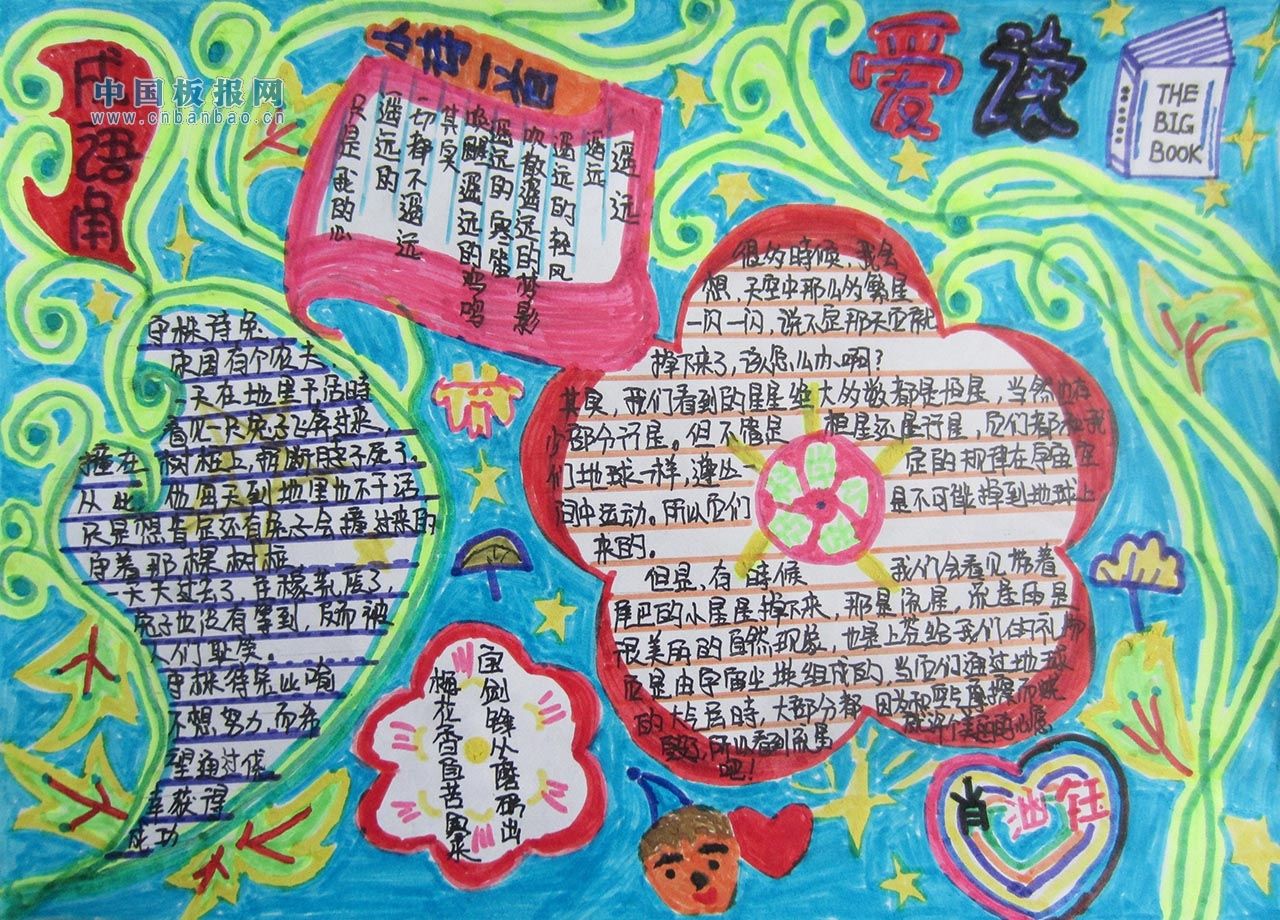 成语角
中国板报网
www.cnbanbao.cn
小诗一首
遥远
遥远
遥远的轻风
吹散遥远的梦影
遥远的寒笛
唤醒遥远的鸡鸣
其实
一切都不遥远
遥远的
只是我的心
爱读
THE
BIG
BOOK
守株待兔
宋国有个农夫
一天在地里干活时
看见一只兔子飞奔过来，
撞在树桩上，折断脖子死了。
从此，他每天到地里也不干活
只是想肯定还有兔子会撞过来的
守着那棵树桩
一天天过去了，庄稼荒废了
兔子也没有等到，反而被
人们耻笑。
守株待兔比喻
不想努力而希
望通过侥
幸获得
成功
很多時候，我会
想，天空中那么多繁星
一闪一闪，说不定那天它就
掉下来了，该怎么办啊？
其实，我们看到的星星绝大多数都是恒星，当然也有
少部分行星。但不管是恒星还是行星，它们都和我
们地球一样，遵从一定的规律在宇宙空
间中运动。所以它们是不可能掉到地球上
来的。
但是，有時候我们会看见拖着
尾巴的小星星掉下来，那是流星，流星雨是
很美丽的自然现象，也是上苍给我们的礼
它是由宇宙尘块组成的，当它们通过地球
的大气层時，大部分都因为和空气摩擦而燃
所以看到流星
就许个美丽的心愿
吧！
宝剑锋从磨砺出
梅花香自苦寒来
肖
钰